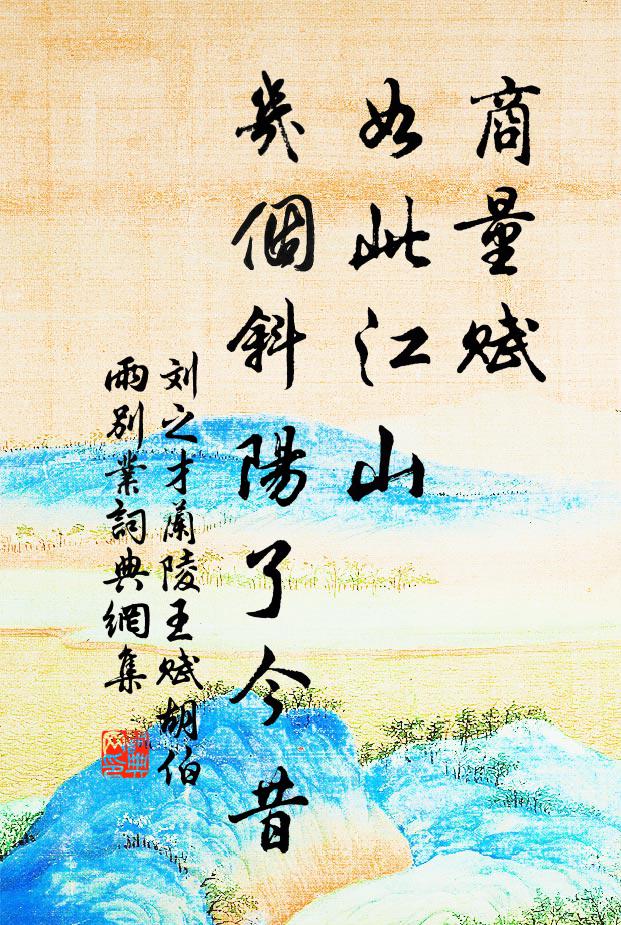 商量赋
如此江山
幾個斜陽了今昔
刘之才蘭陵王赋胡伯
雨别業詞典網集